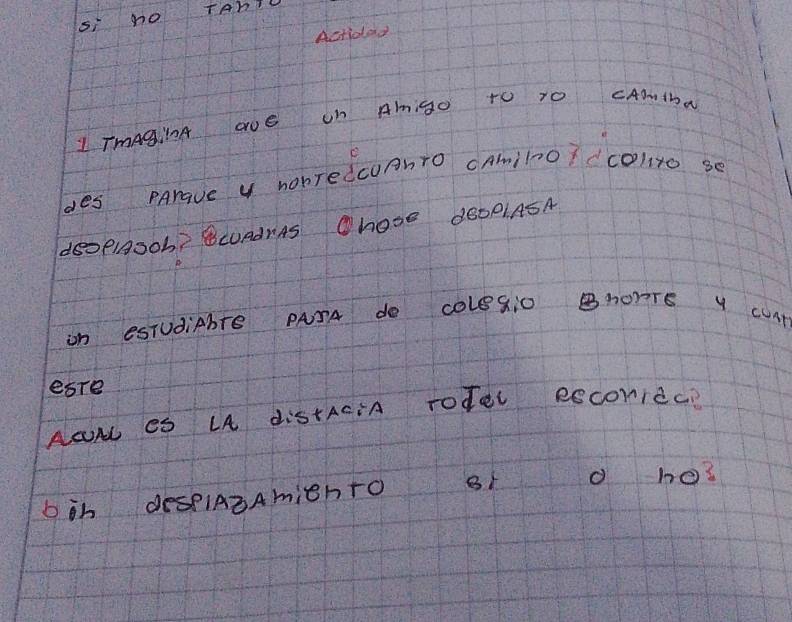 si no TANTO
Actidad
1 TMAGiNA QUE un AmigO TU YO CAMINA
des PARQUE y NORTE ¿CUANTO CAMINO? ¿COMTO SE
desplasoh? 8 CUADRAS O NOSE desPLASA
un esTUdiANTE PARA do colegio 8 NORTE y CUATR
esTE
A CUAL es LA distAciA TOTAL RECORRIDA?
b in desPlAzAmiENTO si o NO?